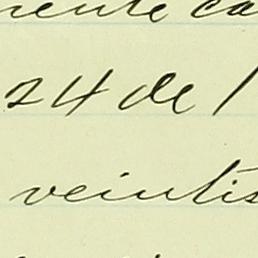 mente ca
24 de 1
veintis